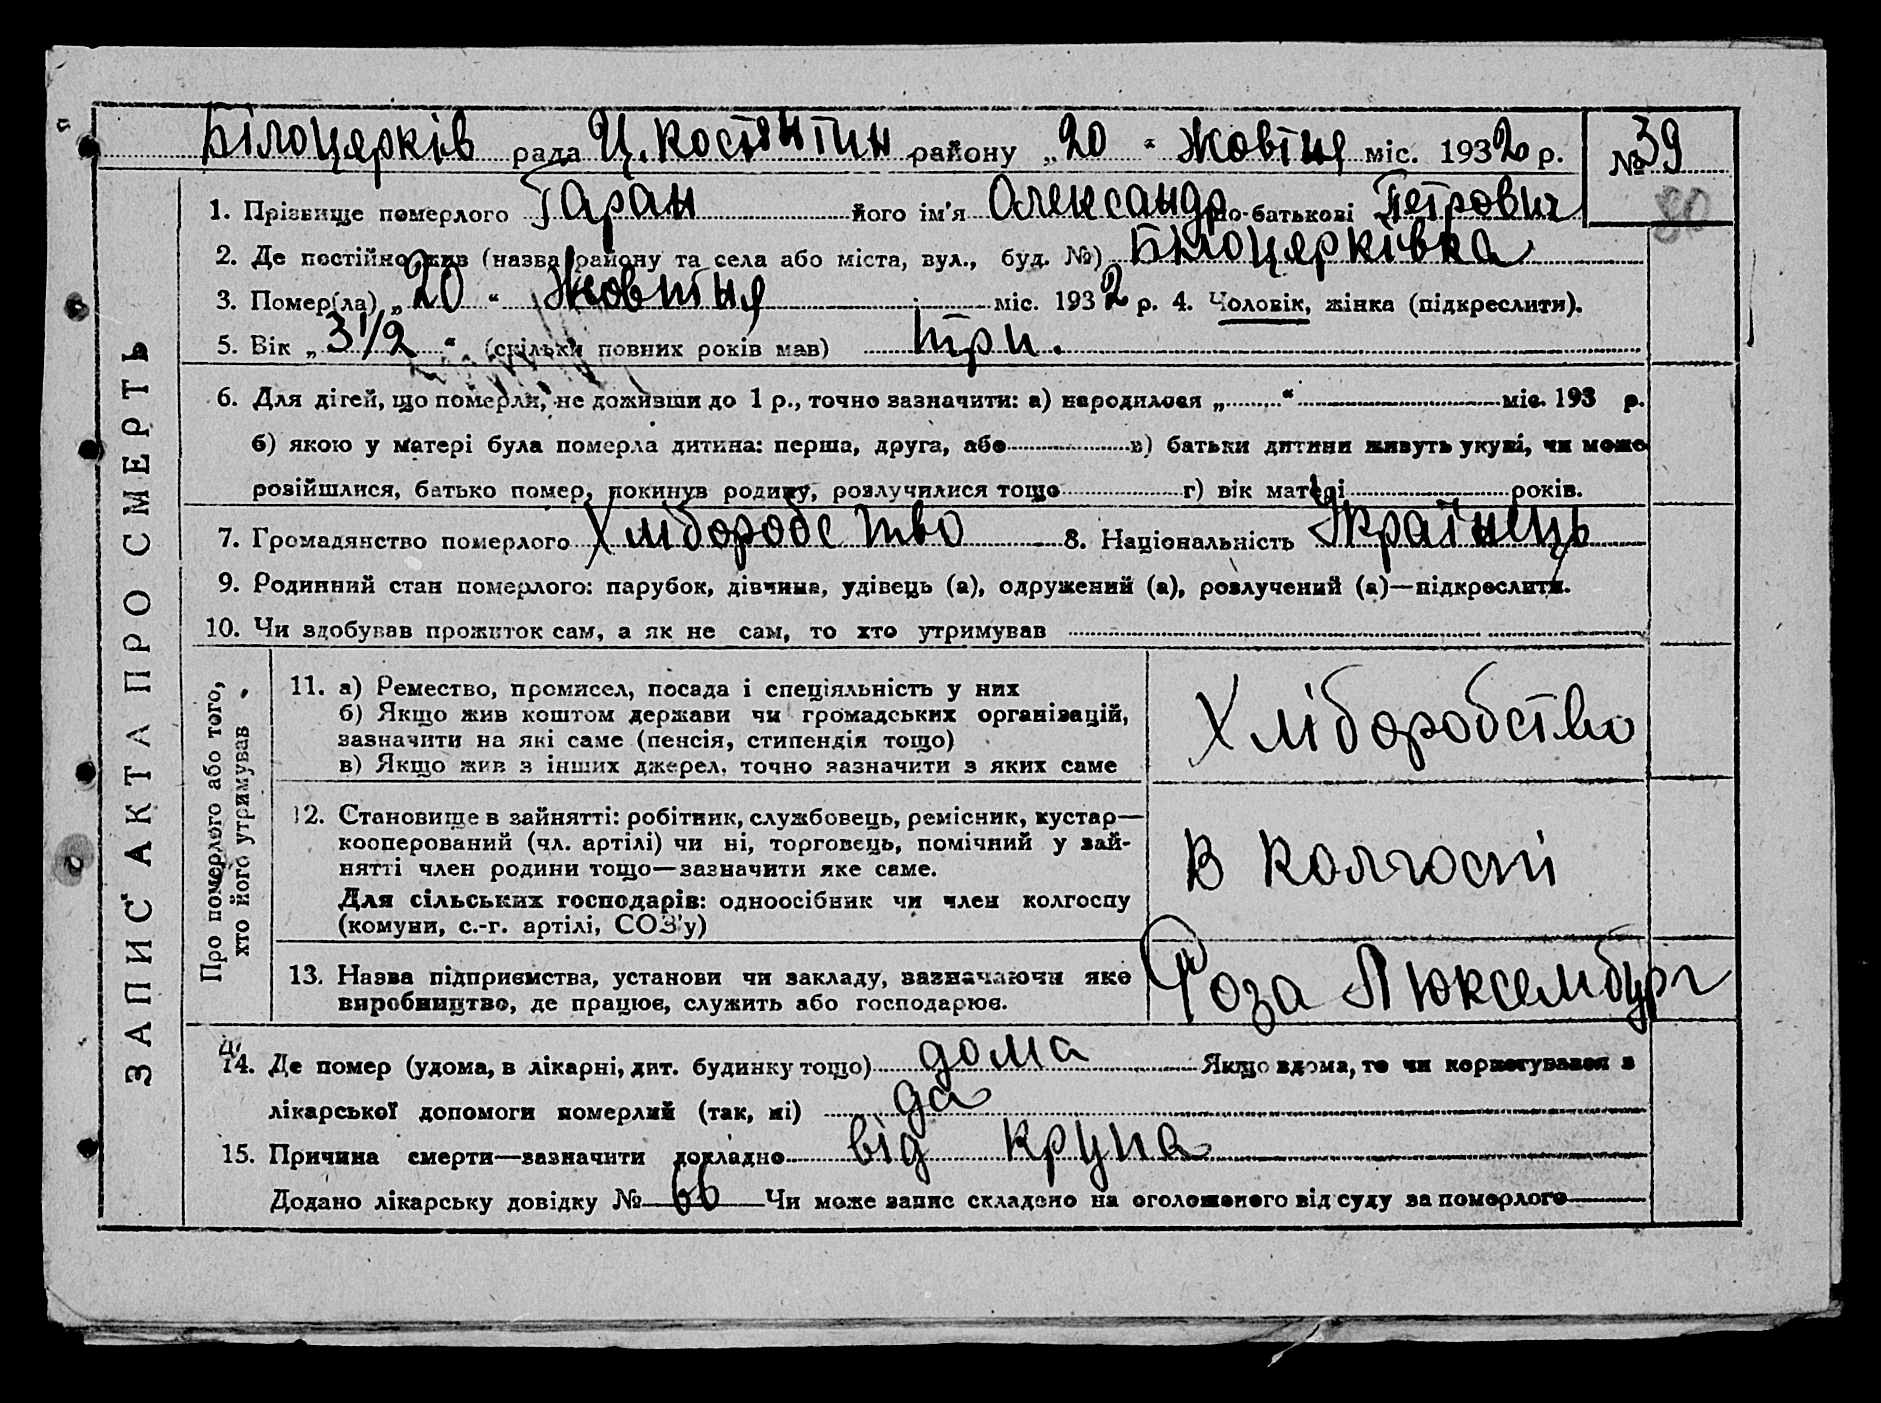 Білоцерків рада Ц. Костянтин району „20“ Жовтня міс. 1932 р. № 39
80
1. Прізвище померлого Таран його ім'я Олександр по-батькові Петрович
2. Де постійно жив (назва району та села або міста, вул., буд. №) Білоцерківка
3. Помер(ла) „20“ Жовтня міс. 1932 р. 4. Чоловік, жінка (підкреслити).
5. Вік „3 1/2“ (скільки повних років мав) три.
6. Для дітей, що померли, не доживши до 1 р., точно зазначити: а) народилося „ “ міс. 193 р.
б) якою у матері була померла дитина: перша, друга, або в) батьки дитини живуть укупі, чи може
розійшлися, батько помер, покинув родину, розлучилися тощо г) вік матері років.
7. Громадянство померлого Хліборобство 8. Національність Украінець
9. Родинний стан померлого: парубок, дівчина, удівець (а), одружений (а), розлучений (а)—підкреслити.
10. Чи здобував прожиток сам, а як не сам, то хто утримував
ЗАПИС АКТА ПРО СМЕРТЬ
Про померлого або того,
хто його утримував
11. а) Ремество, промисел, посада і спеціяльність у них
б) Якщо жив коштом держави чи громадських організацій,
зазначити на які саме (пенсія, стипендія тощо)
в) Якщо жив з інших джерел, точно зазначити з яких саме
Хліборобство
12. Становище в зайнятті: робітник, службовець, ремісник, кустар—
кооперований (чл. артілі) чи ні, торговець, помічний у зай-
нятті член родини тощо—зазначити яке саме.
Для сільських господарів: одноосібник чи член колгоспу
(комуни, с.-г. артілі, СОЗ'у)
в колгоспі
13. Назва підприємства, установи чи закладу, зазначаючи яке
виробництво, де працює, служить або господарює.
Роза Люксембург
14. Де помер (удома, в лікарні, дит. будинку тощо) дома Якщо вдома, то чи користувався з
лікарської допомоги померлий (так, ні) да
15. Причина смерти—зазначити докладно від крупа
Додано лікарську довідку № 66 Чи може запис складено на оголошеного від суду за померлого